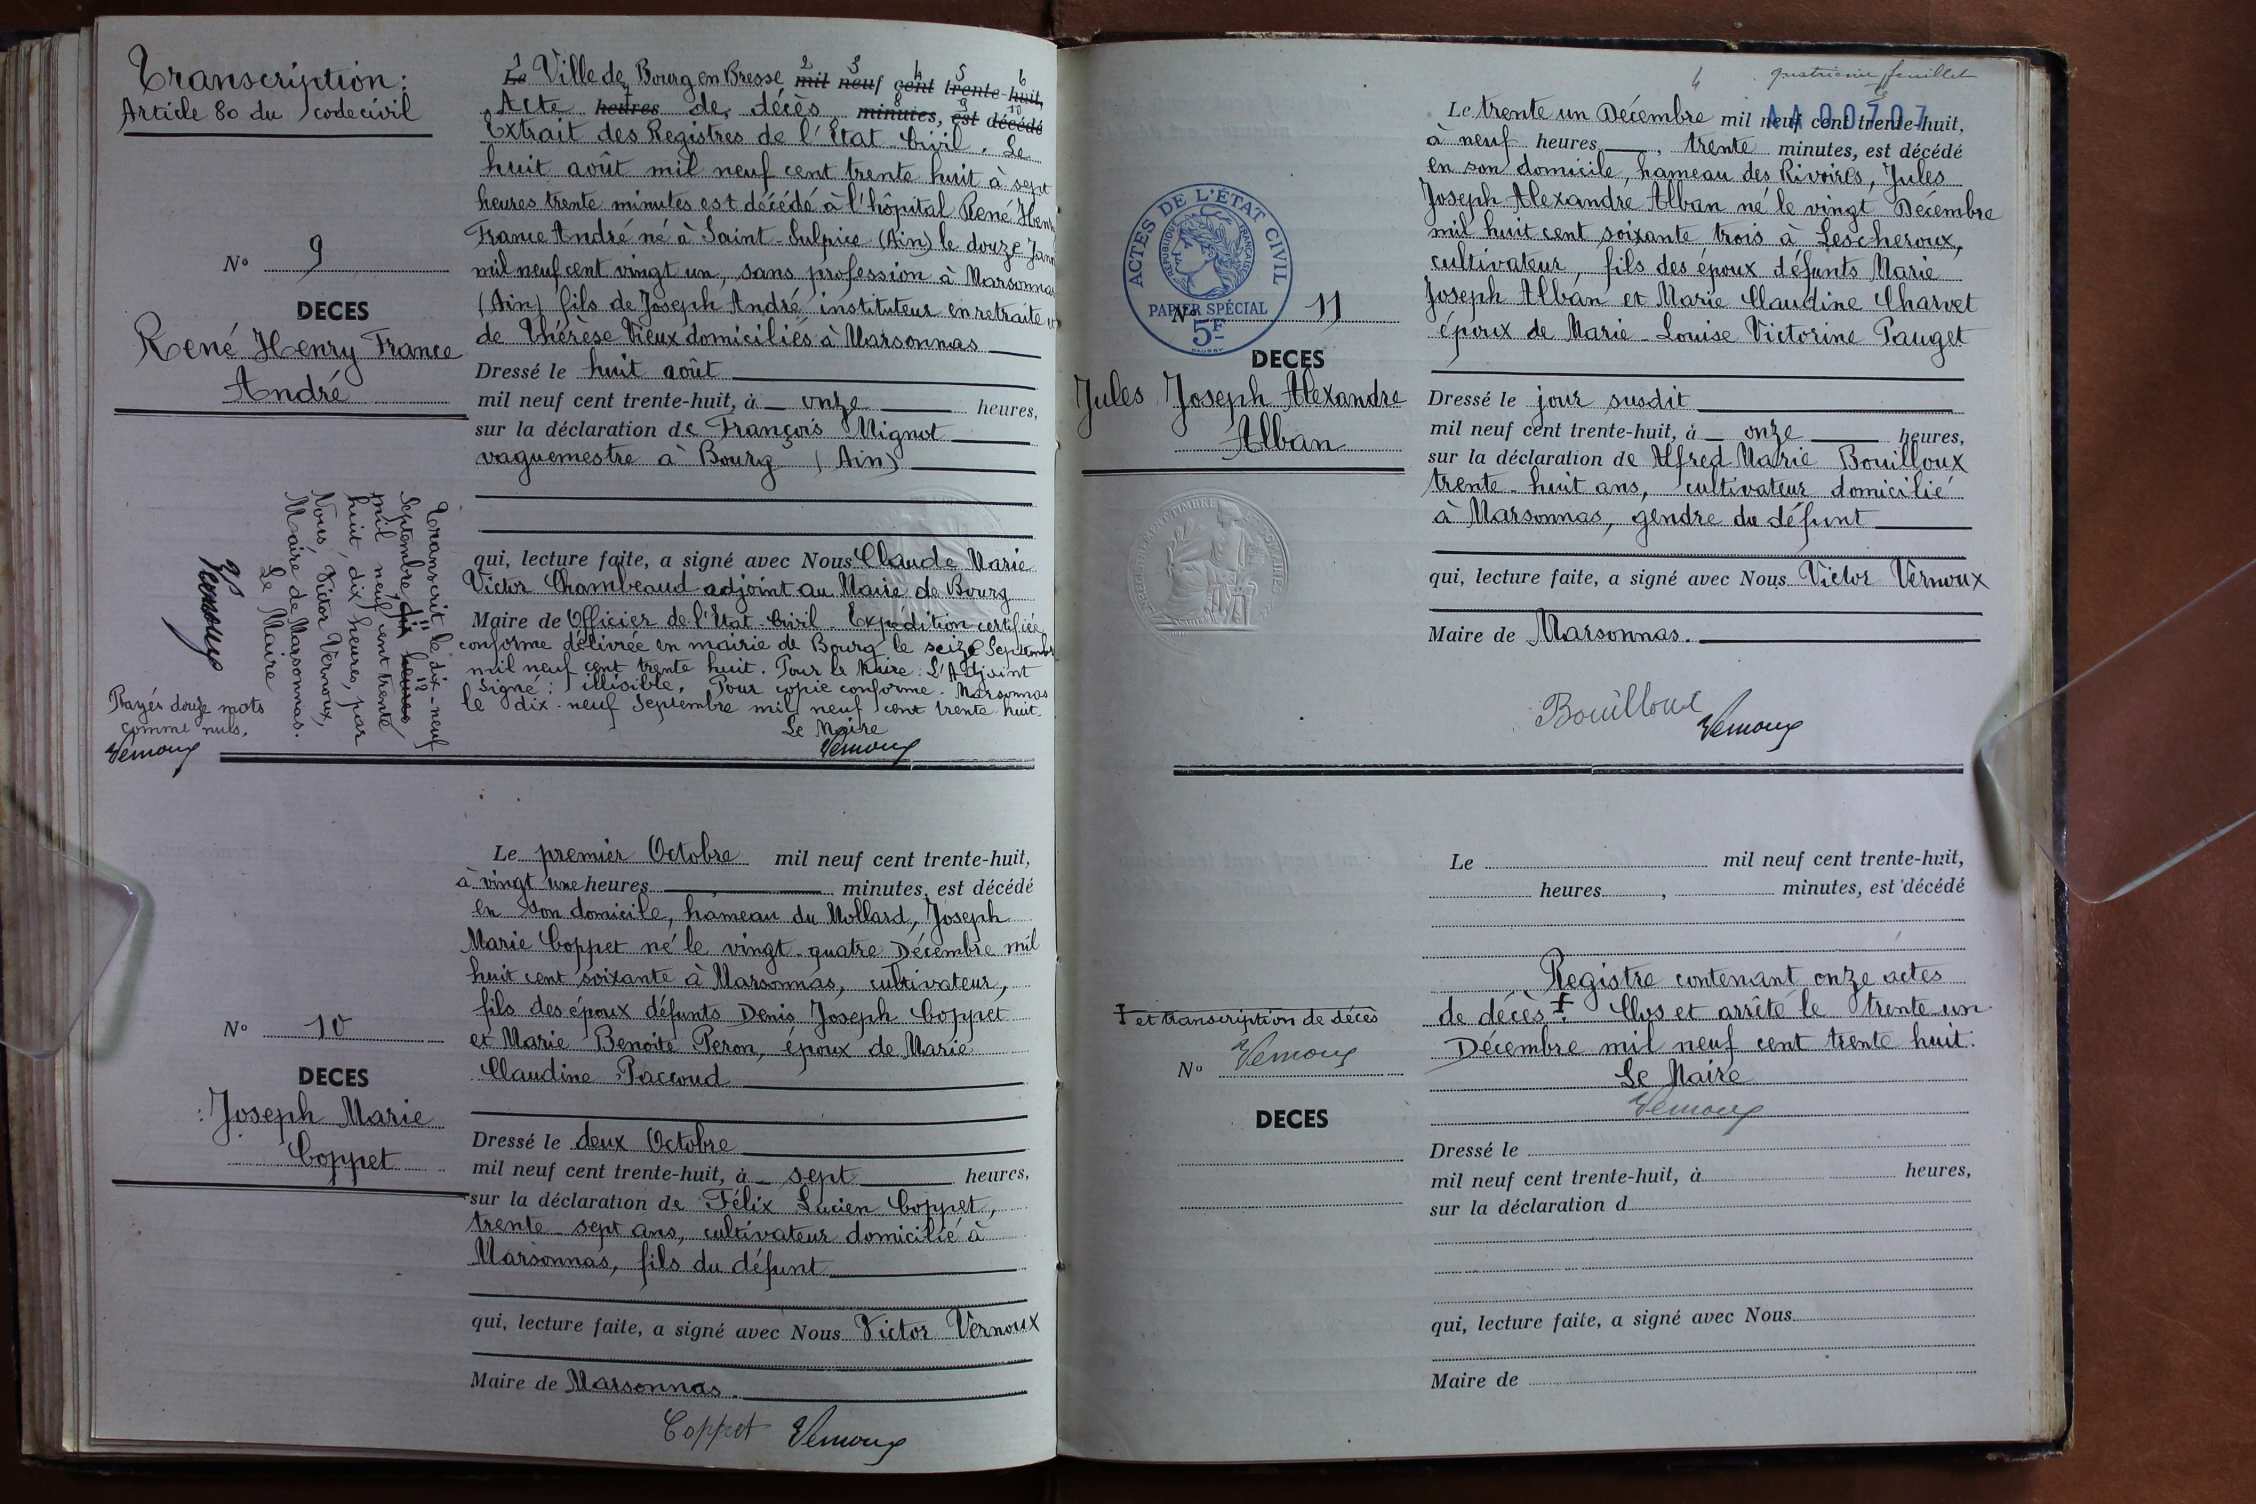 Transcription:
Article 80 du code civil
Nº 9
DECES
René Henry France
André
Le Ville de Bourg en Bresse mil neuf cent trente-huit,
Acte heures de décès minutes, est décédé
Extrait des Registres de l'Etat-Civil. Le
huit août mil neuf cent trente huit à sept
heures trente minutes est décédé à l'hôpital René Hen
France André né à Saint-Sulpice (Ain) le douze Jan
mil neuf cent vingt un, sans profession à Marsonna
(Ain) fils de Joseph André instituteur en retraite
de Thérèse Vieux domiciliés à Marsonnas
Dressé le huit août
mil neuf cent trente-huit, à onze heures,
sur la déclaration de François Mignot
vaguemestre à Bourg (Ain)
qui, lecture faite, a signé avec Nous Claude Marie
Victor Chambeaud adjoint au Maire de Bourg
Maire de Officier de l'Etat-Civil. Expédition certifiée
conforme délivrée en mairie de Bourg le seize Septemb
mil neuf cent trente huit. Pour le Maire: L'Adjoint
Signé: illisible. Pour copie conforme. Marsonnas
le dix-neuf Septembre mil neuf cent trente huit.
Le Maire
Vernoux
Transcrit le dix-neuf
Septembre dix heures
mil neuf cent trente
huit, dix heures, par
Nous, Victor Vernoux,
Maire de Marsonnas.
Le Maire
Vernoux
Rayés douze mots
comme nuls.
Vernoux
Nº 10
DECES
Joseph Marie
Coppet
Le premier Octobre mil neuf cent trente-huit,
à vingt une heures minutes, est décédé
en son domicile, hameau du Mollard, Joseph
Marie Coppet né le vingt-quatre Décembre mil
huit cent soixante à Marsonnas, cultivateur,
fils des époux défunts Denis Joseph Coppet
et Marie Benoite Peron, époux de Marie
Claudine Paccoud
Dressé le deux Octobre
mil neuf cent trente-huit, à sept heures,
sur la déclaration de Félix Lucien Coppet,
trente-sept ans, cultivateur domicilié à
Marsonnas, fils du défunt
qui, lecture faite, a signé avec Nous Victor Vernoux
Maire de Marsonnas.
Coppet Vernoux
4 quatrième feuillet
AA 00707
ACTES DE L'ÉTAT CIVIL
RÉPUBLIQUE FRANÇAISE
PAPIER SPÉCIAL
5F
Nº 11
DECES
Jules Joseph Alexandre
Alban
Le trente un Décembre mil neuf cent trente-huit,
à neuf heures, trente minutes, est décédé
en son domicile, hameau des Rivoires, Jules
Joseph Alexandre Alban né le vingt Décembre
mil huit cent soixante trois à Lescheroux,
cultivateur, fils des époux défunts Marie
Joseph Alban et Marie Claudine Charvet
époux de Marie-Louise Victorine Pauget
Dressé le jour susdit
mil neuf cent trente-huit, à onze heures,
sur la déclaration de Alfred Marie Bouilloux
trente-huit ans, cultivateur domicilié
à Marsonnas, gendre du défunt
qui, lecture faite, a signé avec Nous Victor Vernoux
Maire de Marsonnas.
Bouilloux Vernoux
Le mil neuf cent trente-huit,
heures, minutes, est décédé
Registre contenant onze actes
de décès. Clos et arrêté le trente-un
Décembre mil neuf cent trente huit.
Le Maire
Vernoux
et transcription de décès
Vernoux
Nº
DECES
Dressé le
mil neuf cent trente-huit, à heures,
sur la déclaration d
qui, lecture faite, a signé avec Nous
Maire de